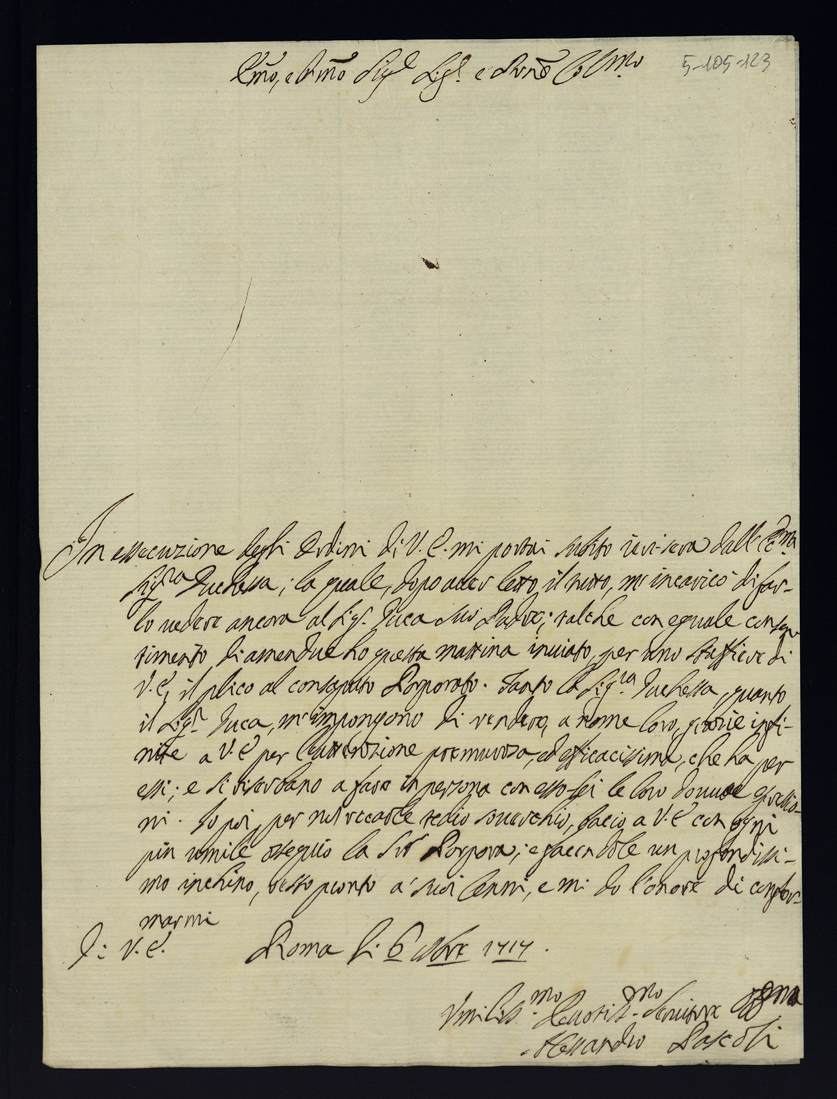 5-105-123
Em̃o, e Rm̃o Sig.r Sig.r e Prõne Col.mo
In essecuzione degli Ordini di V. E. mi portai subito ieri sera dall' Ecc.ma
Sig.ra Duchessa; la quale, dopo aver letto il tutto, m' incaricò di far-
lo vedere ancora al Sig.r Duca suo Padre; talche con eguale consen-
timento di amendue ho questa mattina inviato, per uno staffiere di
V. E., il plico al consaputo Porporato. Tanto la Sig.ra Duchessa, quanto
il Sig.r Duca, m' impongono di rendere, a nome loro, grazie infi-
nite a V. E. per l' attenzione premurosa, ed efficacissima, che ha per
essi; e si riserbano a fare in persona con esso Lei le loro dovute espressio-
ni. Io poi, per non recarle tedio soverchio, bacio a V. E. con ogni
più umile ossequio la Sac. Porpora; e facendole un profondissi-
mo inchino, resto pronto a' suoi Cenni, e mi do l' onore di confer-
marmi
Di V. E. Roma li 6 Xbre 1717.
Umiliss.mo Devotiss.mo Servitore
Alessandro Pascoli